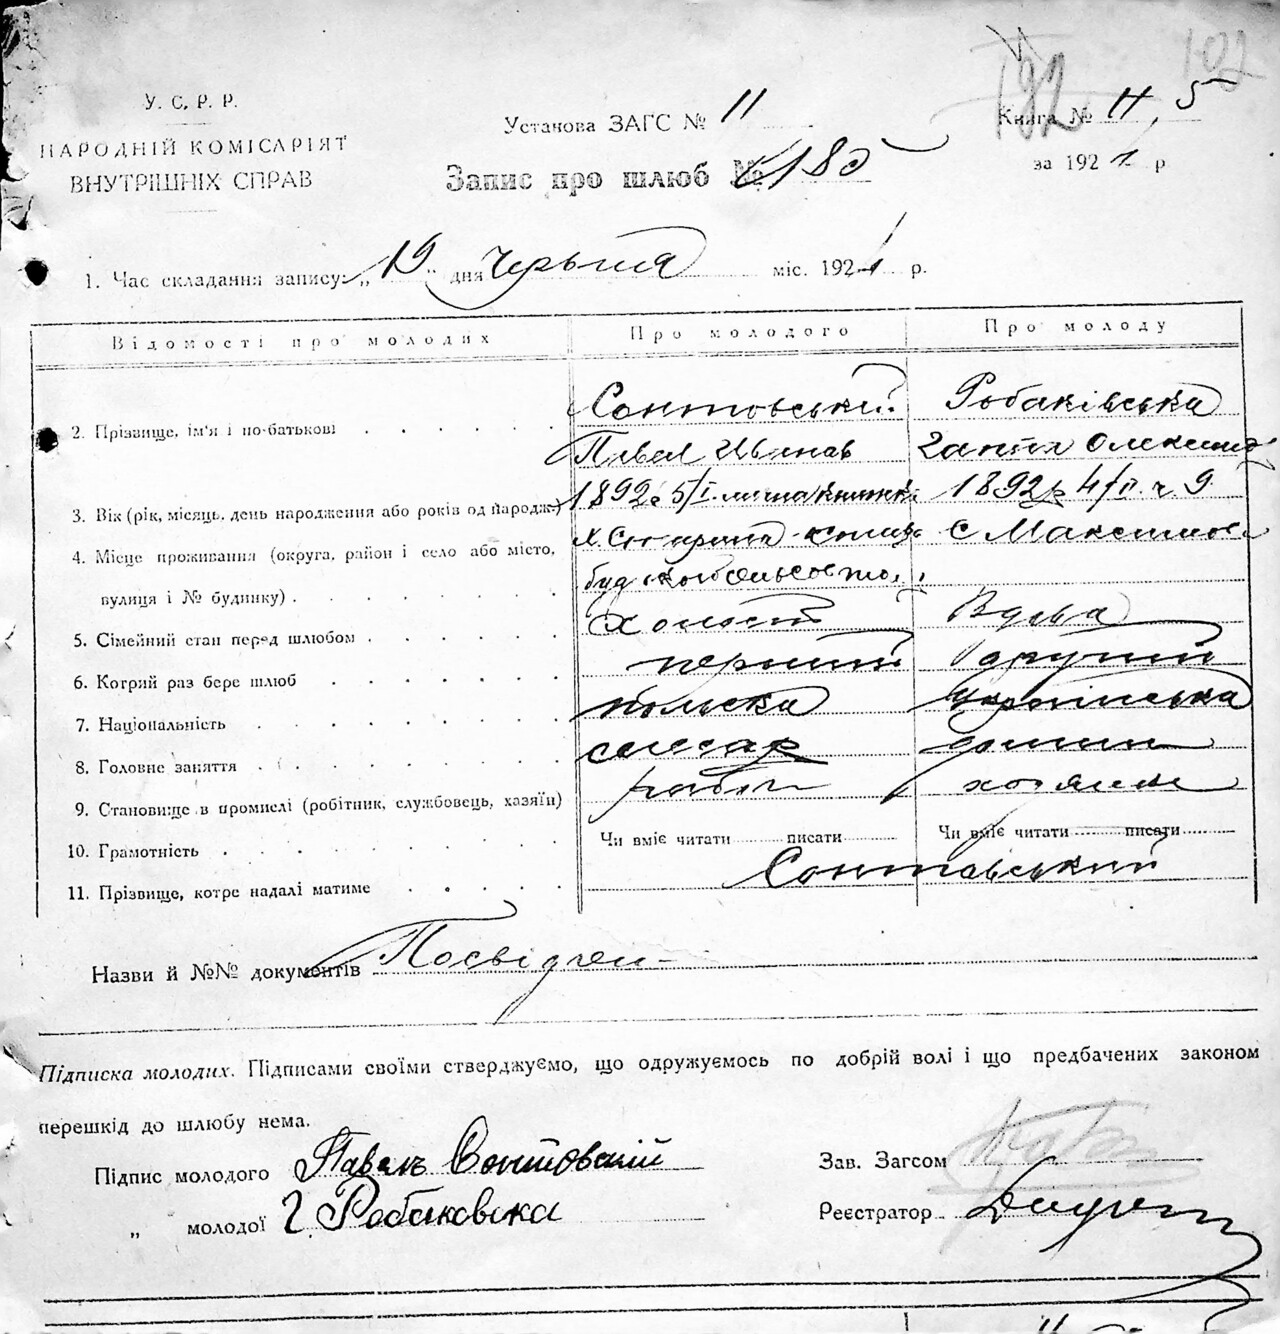 102
192
У. С. Р. Р.
НАРОДНІЙ КОМІСАРІЯТ
ВНУТРІШНІХ СПРАВ
Установа ЗАГС № 11
Книга № 11, 5
Запис про шлюб № 185
за 1921 р
1. Час складання запису: „19„ дня Червня міс. 1921 р.
Відомості про молодих
Про молодого
Про молоду
2. Прізвище, ім'я і по-батькові
Сонтовський
Павел Иванав
Робаківська
3. Вік (рік, місяць, день народження або років од народж.)
1892 5/I
1892 р 4/II ч 9
4. Місце проживання (округа, район і село або місто,
вулиця і № будинку)
С Максимов
буд
5. Сімейний стан перед шлюбом
холост
Вдова
6. Котрий раз бере шлюб
перший
другий
7. Національність
польска
Українська
8. Головне заняття
слесар
домашн
9. Становище в промислі (робітник, службовець, хазяїн)
робоч
хозяйк
10. Грамотність
Чи вміє читати писати
Чи вміє читати писати
11. Прізвище, котре надалі матиме
Сонтавський
Назви й №№ документів Посвідчен-
Підписка молодих. Підписами своїми стверджуємо, що одружуємось по добрій волі і що предбачених законом
перешкід до шлюбу нема.
Підпис молодого Павелъ Сонтовскій
„ молодої Г Робаковска
Зав. Загсом
Реєстратор